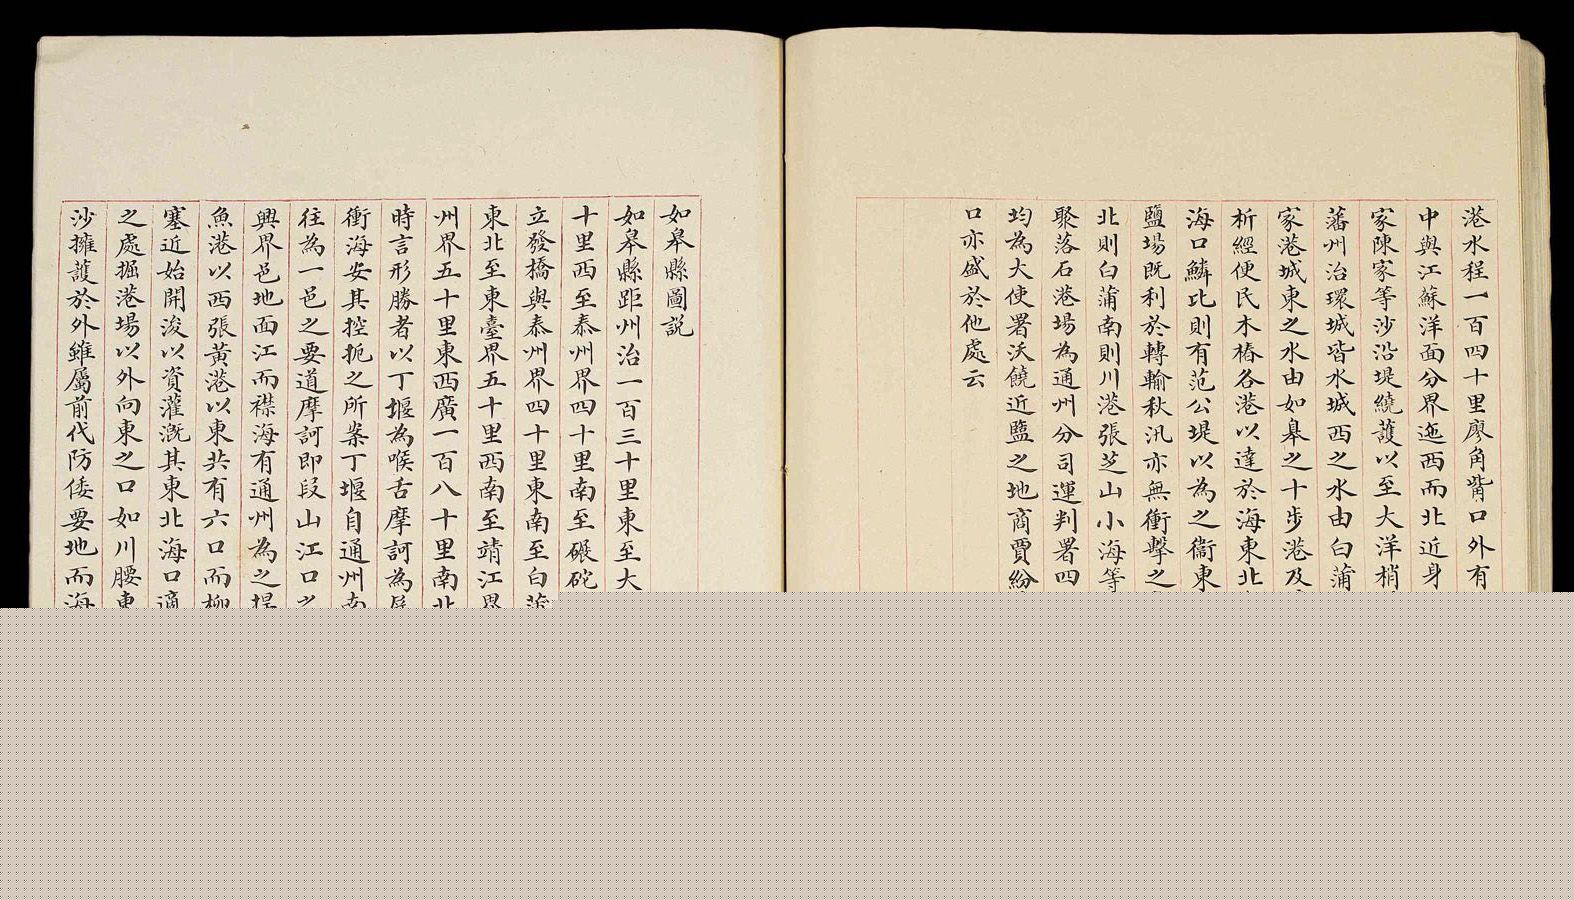 港水程一百四十里廖角觜口外有
中與江蘇洋面分界迤西而北近身
家陳家等沙沿堤繞護以至大洋梢
藩州治環城皆水城西之水由白蒲
家港城東之水由如皋之十步港及
析經便民木樁各港以達於海東北
海口鱗比則有范公堤以為之衞東
鹽場既利於轉輸秋汛亦無衝擊之
北則白蒲南則川港張芝山小海等
聚落石港場為通州分司運判署四
均為大使署沃饒近鹽之地商賈紛
口亦盛於他處云
如皋縣圖説
如皋縣距州治一百三十里東至大
十里西至泰州界四十里南至碾砣
立發橋與泰州界四十里東南至白蒲
東北至東臺界五十里西南至靖江界
州界五十里東西廣一百八十里南北
時言形勝者以丁堰為喉舌摩訶為
衝海安其控扼之所崇丁堰自通州南
往為一邑之要道摩訶即段山江口之
興界邑地面江而襟海有通州為之捍
魚港以西張黃港以東共有六口而柳
塞近始開浚以資灌漑其東北海口適
之處掘港場以外向東之口如川腰東
沙擁護於外雖屬前代防倭要地而海